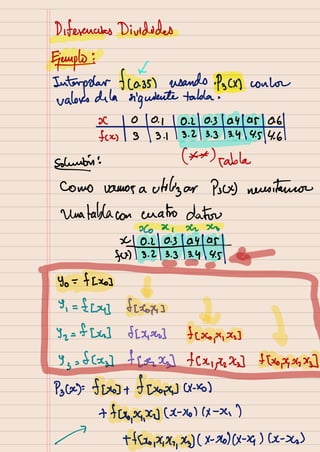 Diferencias Divididas
Ejemplo:
Interpolar f(0.35) usando P₃(x) con los
valores de la siguiente tabla.
x 0 0.1 0.2 0.3 0.4 0.5 0.6
f(x) 3 3.1 3.2 3.3 3.4 4.5 4.6
Solución: (**) Tabla
Como vamos a utilizar P₃(x) necesitamos
una tabla con cuatro datos
x₀ x₁ x₂ x₃
x 0.2 0.3 0.4 0.5
f(x) 3.2 3.3 3.4 4.5
y₀ = f[x₀]
y₁ = f[x₁] f[x₀,x₁]
y₂ = f[x₂] f[x₁,x₂] f[x₀,x₁,x₂]
y₃ = f[x₃] f[x₂,x₃] f[x₁,x₂,x₃] f[x₀,x₁,x₂,x₃]
P₃(x) = f[x₀] + f[x₀,x₁](x-x₀)
+ f[x₀,x₁,x₂](x-x₀)(x-x₁)
+ f[x₀,x₁,x₂,x₃](x-x₀)(x-x₁)(x-x₂)